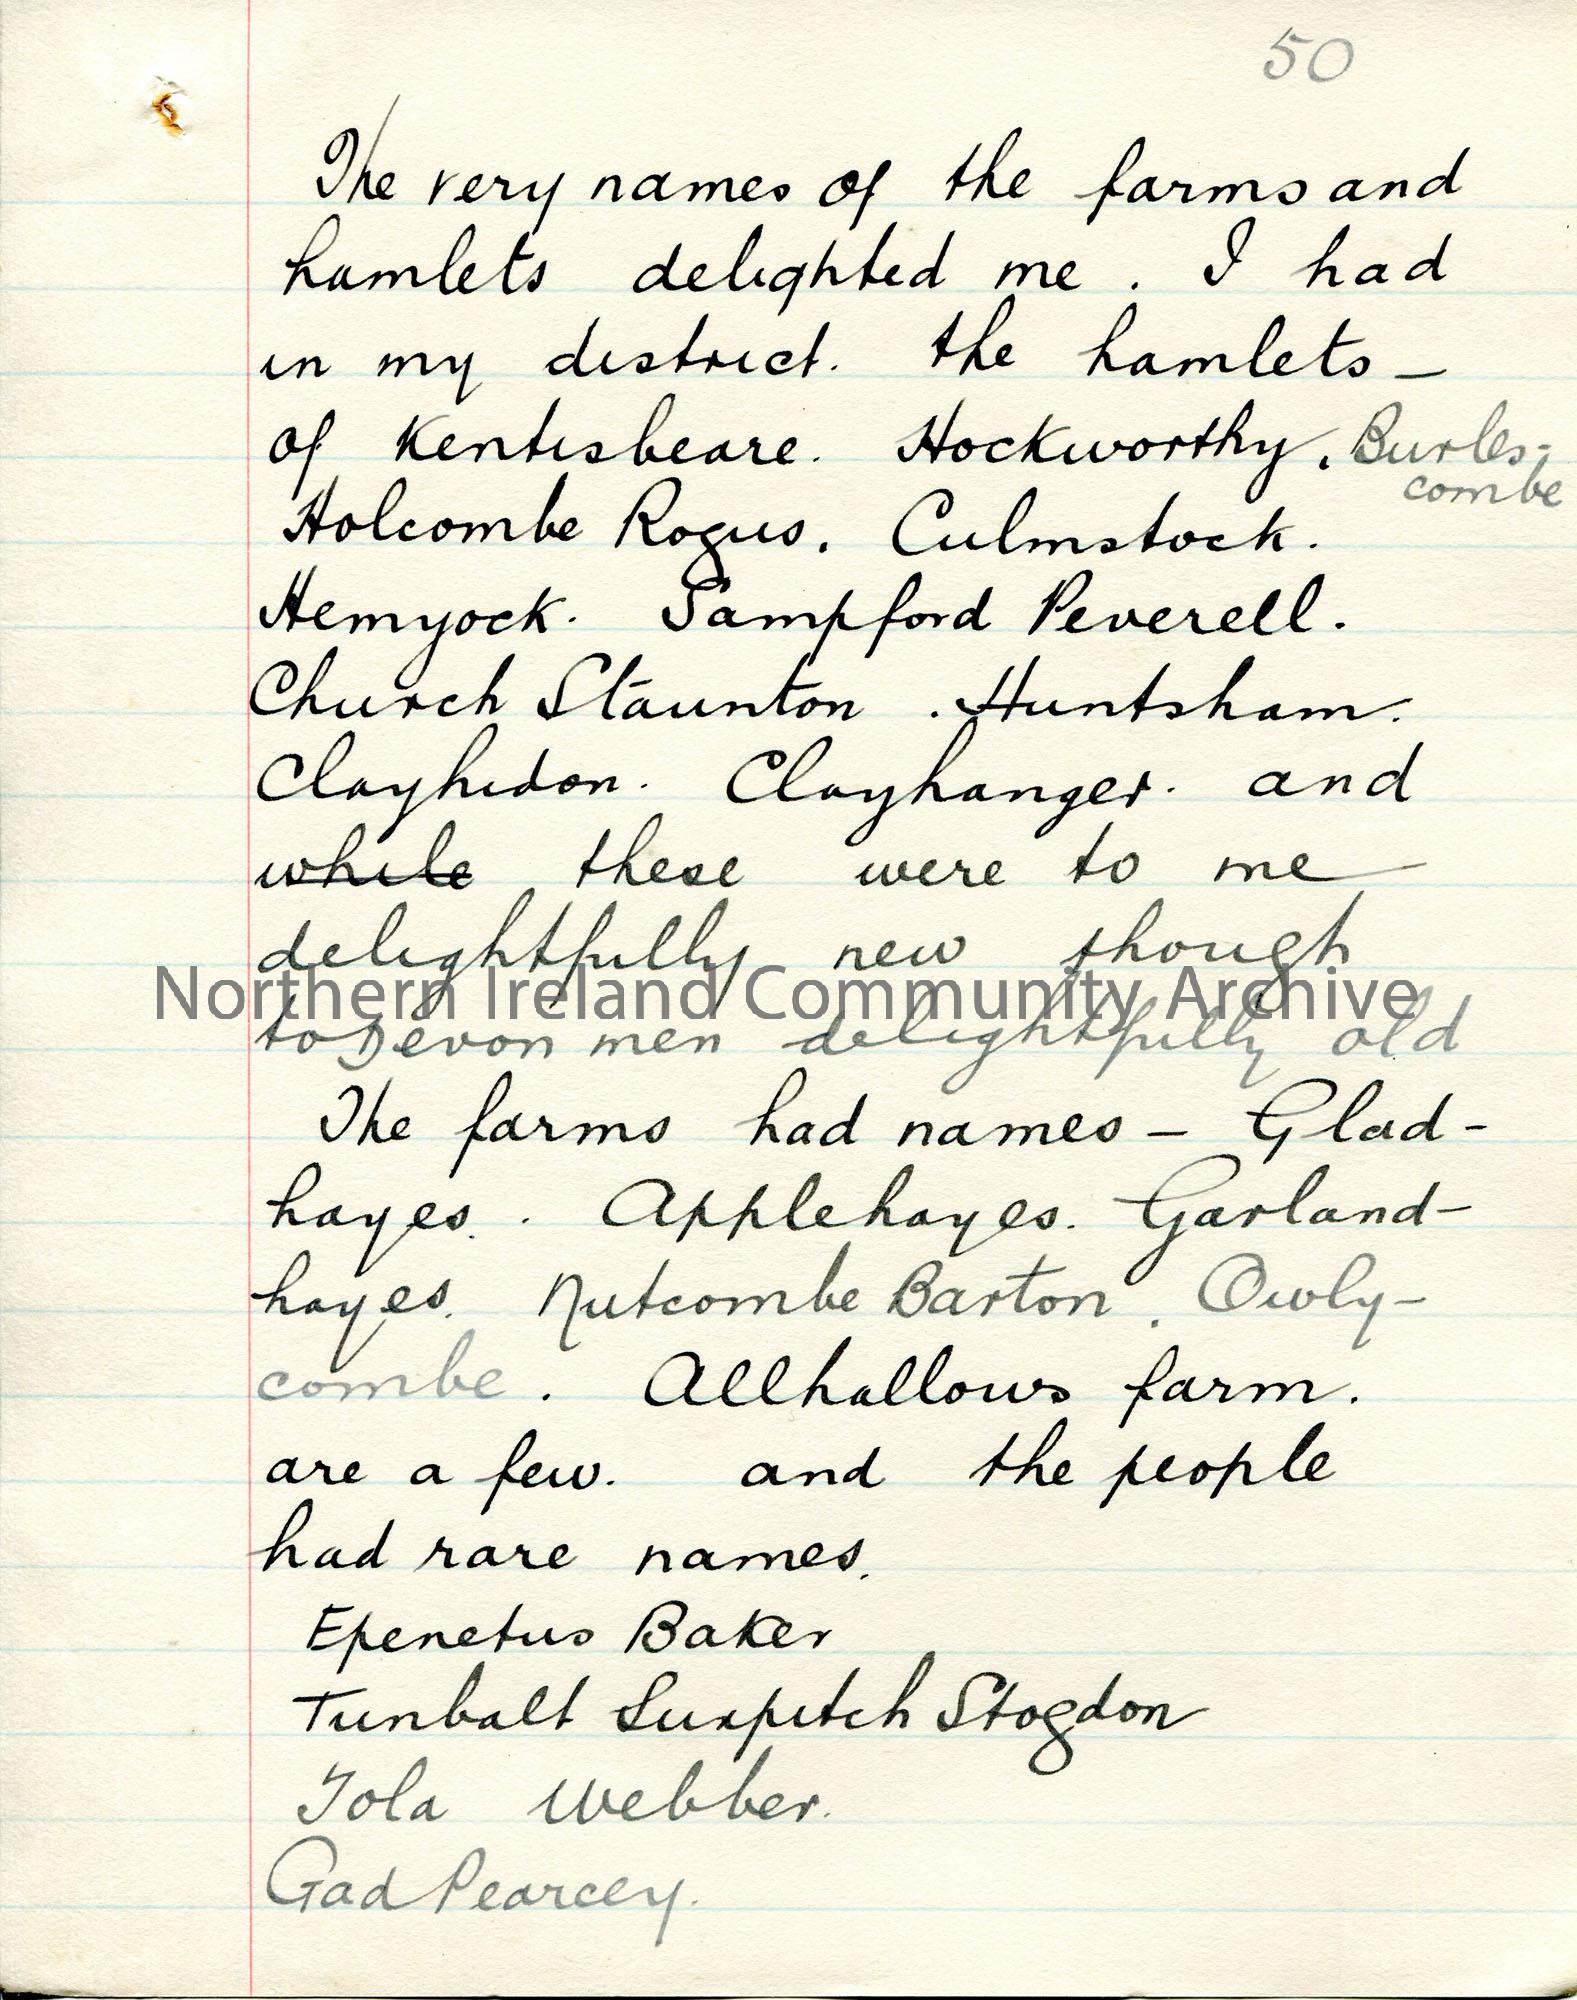 50
The very names of the farms and
hamlets delighted me. I had
in my district. the hamlets –
of Kentisbeare. Hockworthy, Burles-
combe
Holcombe Rogus. Culmstock.
Hemyock. Sampford Peverell.
Church Staunton. Huntsham.
Clayhidon. Clayhanger. and
while these were to me
delightfully new though
Northern Ireland Community Archive
to Devon men delightfully old
The farms had names – Glad-
hayes. Applehayes. Garland-
hayes. Nutcombe Barton. Owly-
combe. Allhallows farm.
are a few. and the people
had rare names.
Epenetus Baker
Tunbalt Surpitch Stogdon
Tola Webber.
Gad Pearcey.